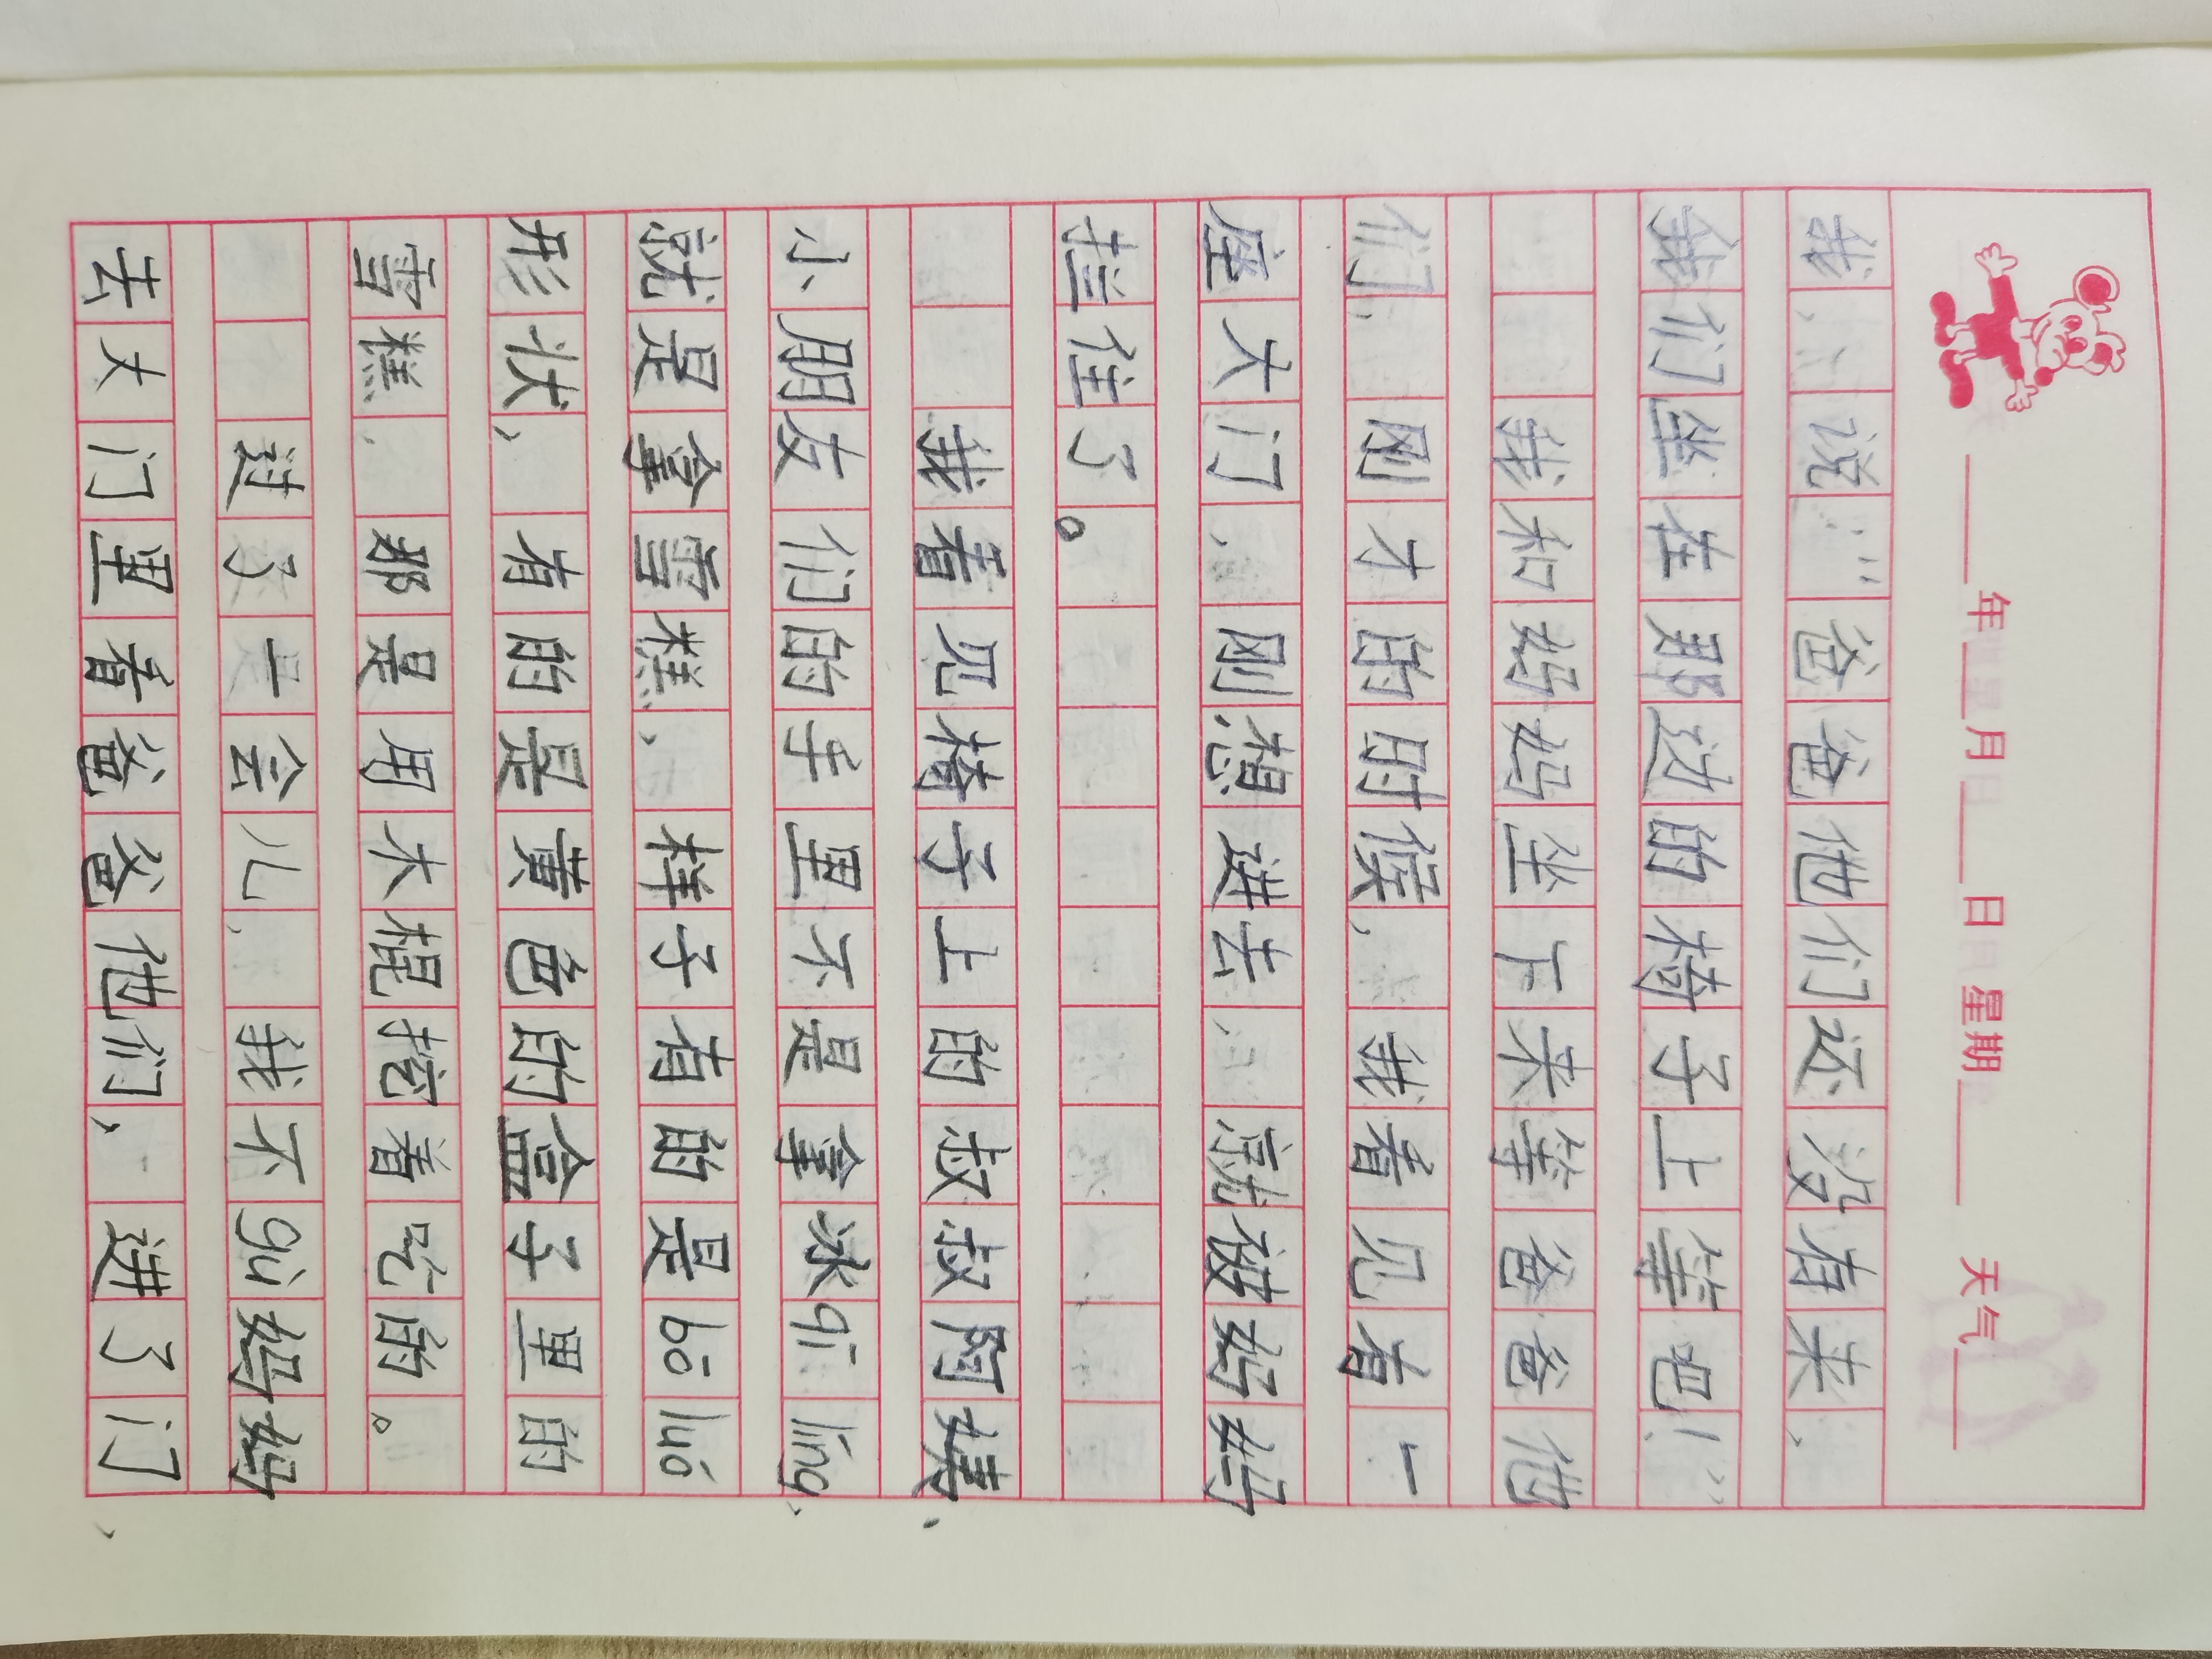 年 月 日 星期 天气
我,说:“爸爸他们还没有来,
我们坐在那边的椅子上等吧!”
我和妈妈坐下来等爸爸他
们,刚才的时候,我看见有一
座大门,刚想进去,就被妈妈
拦住了。
我看见椅子上的叔叔阿姨、
小朋友们的手里不是拿冰qí líng,
就是拿雪糕,样子有的是bō luó
形状,有的是黄色的盒子里的
雪糕,那是用木棍挖着吃的。
过了一会儿,我不gù妈妈
去大门里看爸爸他们,进了门,